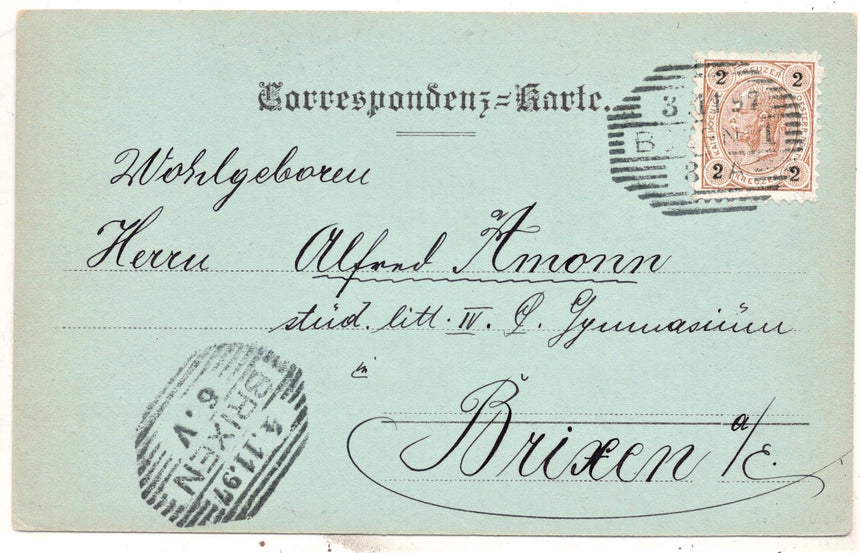 Correspondenz=Karte.
2 KREUZER 2
3 11 97
B N 1
8
2 2
Wohlgeboren
Herrn Alfred Amonn
stúd. litt. IV. Q. Gymnasiúm
in
Brixen a/E.
4.11.97
BRIXEN
6.V